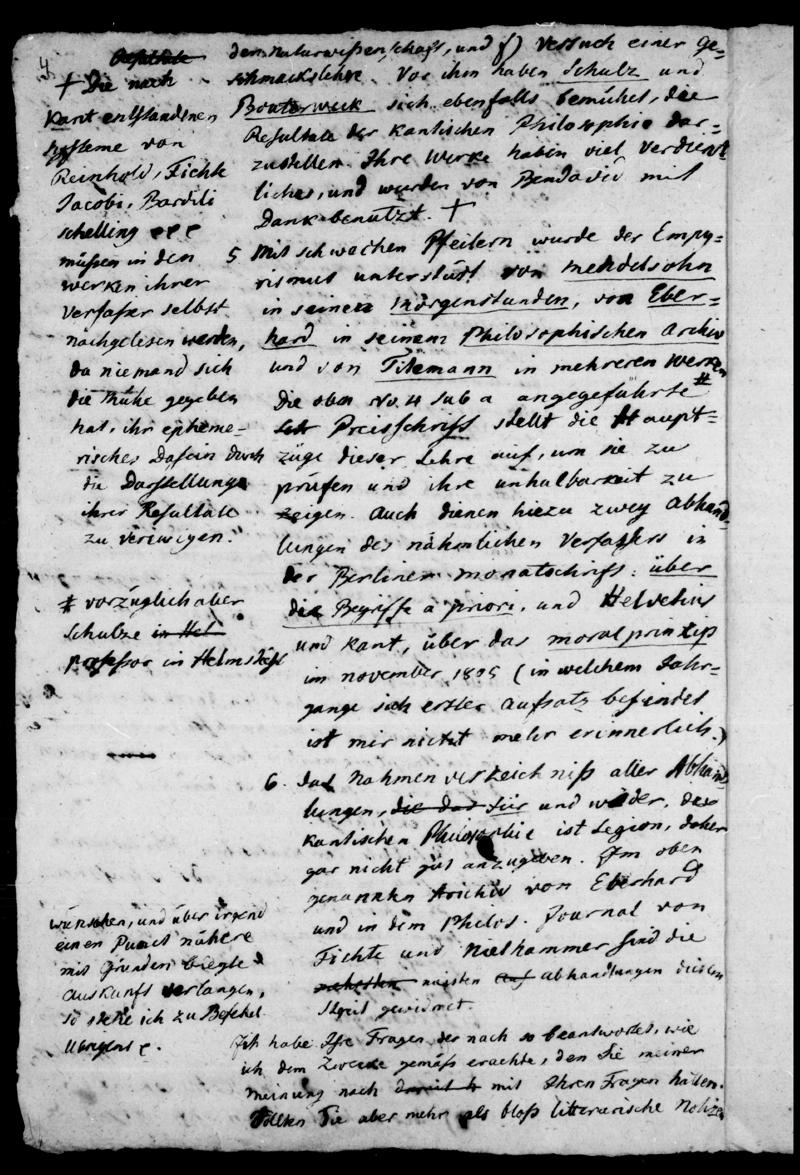 4.
der Naturwißenschaft, und f) Versuch einer Ge=
schmackslehre. Vor ihm haben Schulz und
Bouterweck sich ebenfalls bemühet, die
Resultate der kantischen Philosophie dar=
zustellen. Ihre Werke haben viel verdienst
liches, und wurden von Bendavid mit
Dank benutzt. +
5 Mit schwachen Pfeilern wurde der Empy=
rismus unterstüzt von Mendelsohn
in seinen Morgenstunden, von Eber=
hard in seinem Philosophischen Archiv
und von Titemann in mehreren Werken #
Die oben No. 4 sub a angeführte
Preisschrift stellt die Haupt=
züge dieser Lehre auf, um sie zu
prüfen und ihre unhaltbarkeit zu
zeigen. Auch dienen hiezu zwey Abhand
lungen des nähmlichen Verfaßers in
der Berliner Monatschrift: über
die Begriffe a priori, und Helvetius
und Kant, über das Moralprintzip
im November 1805 (in welchem Jahr=
gange sich erster Aufsatz befindet
ist mir nicht mehr erinnerlich.)
6. Das Nahmenverzeichniß aller Abhand
lungen, die das für und wieder, der
kantischen Philosophie ist Legion, daher
gar nicht gut anzugeben. Im oben
genannten Archiv von Eberhard
und in dem Philos. Journal von
Fichte und Niethammer sind die
meisten auf abhandlungen diesem
Streit gewidmet.
Ich habe Ihre Fragen dernach so beantwortet, wie
ich dem Zwecke gemäß erachte, den Sie meiner
Meinung nach mit Ihren Fragen hatten.
Sollten Sie aber mehr als bloß litterärische Notizen
Resultate
+ Die nach
Kant entstandenen
Systeme von
Reinhold, Fichte
Jacobi, Bardili
Schelling
müßen in den
Werken ihrer
Verfaßer selbst
nachgelesen werden,
da niemand sich
die Mühe gegeben
hat, ihr epheme-
risches Dasein durch
die Darstellunge
ihrer Resultate
zu verewigen.
# vorzüglich aber
Schulze in Hel
Professor in Helmstädt
wünschen, und über irgend
einen Punct nähere
mit Gründen
Auskunft verlangen,
so stehe ich zu Befehl.